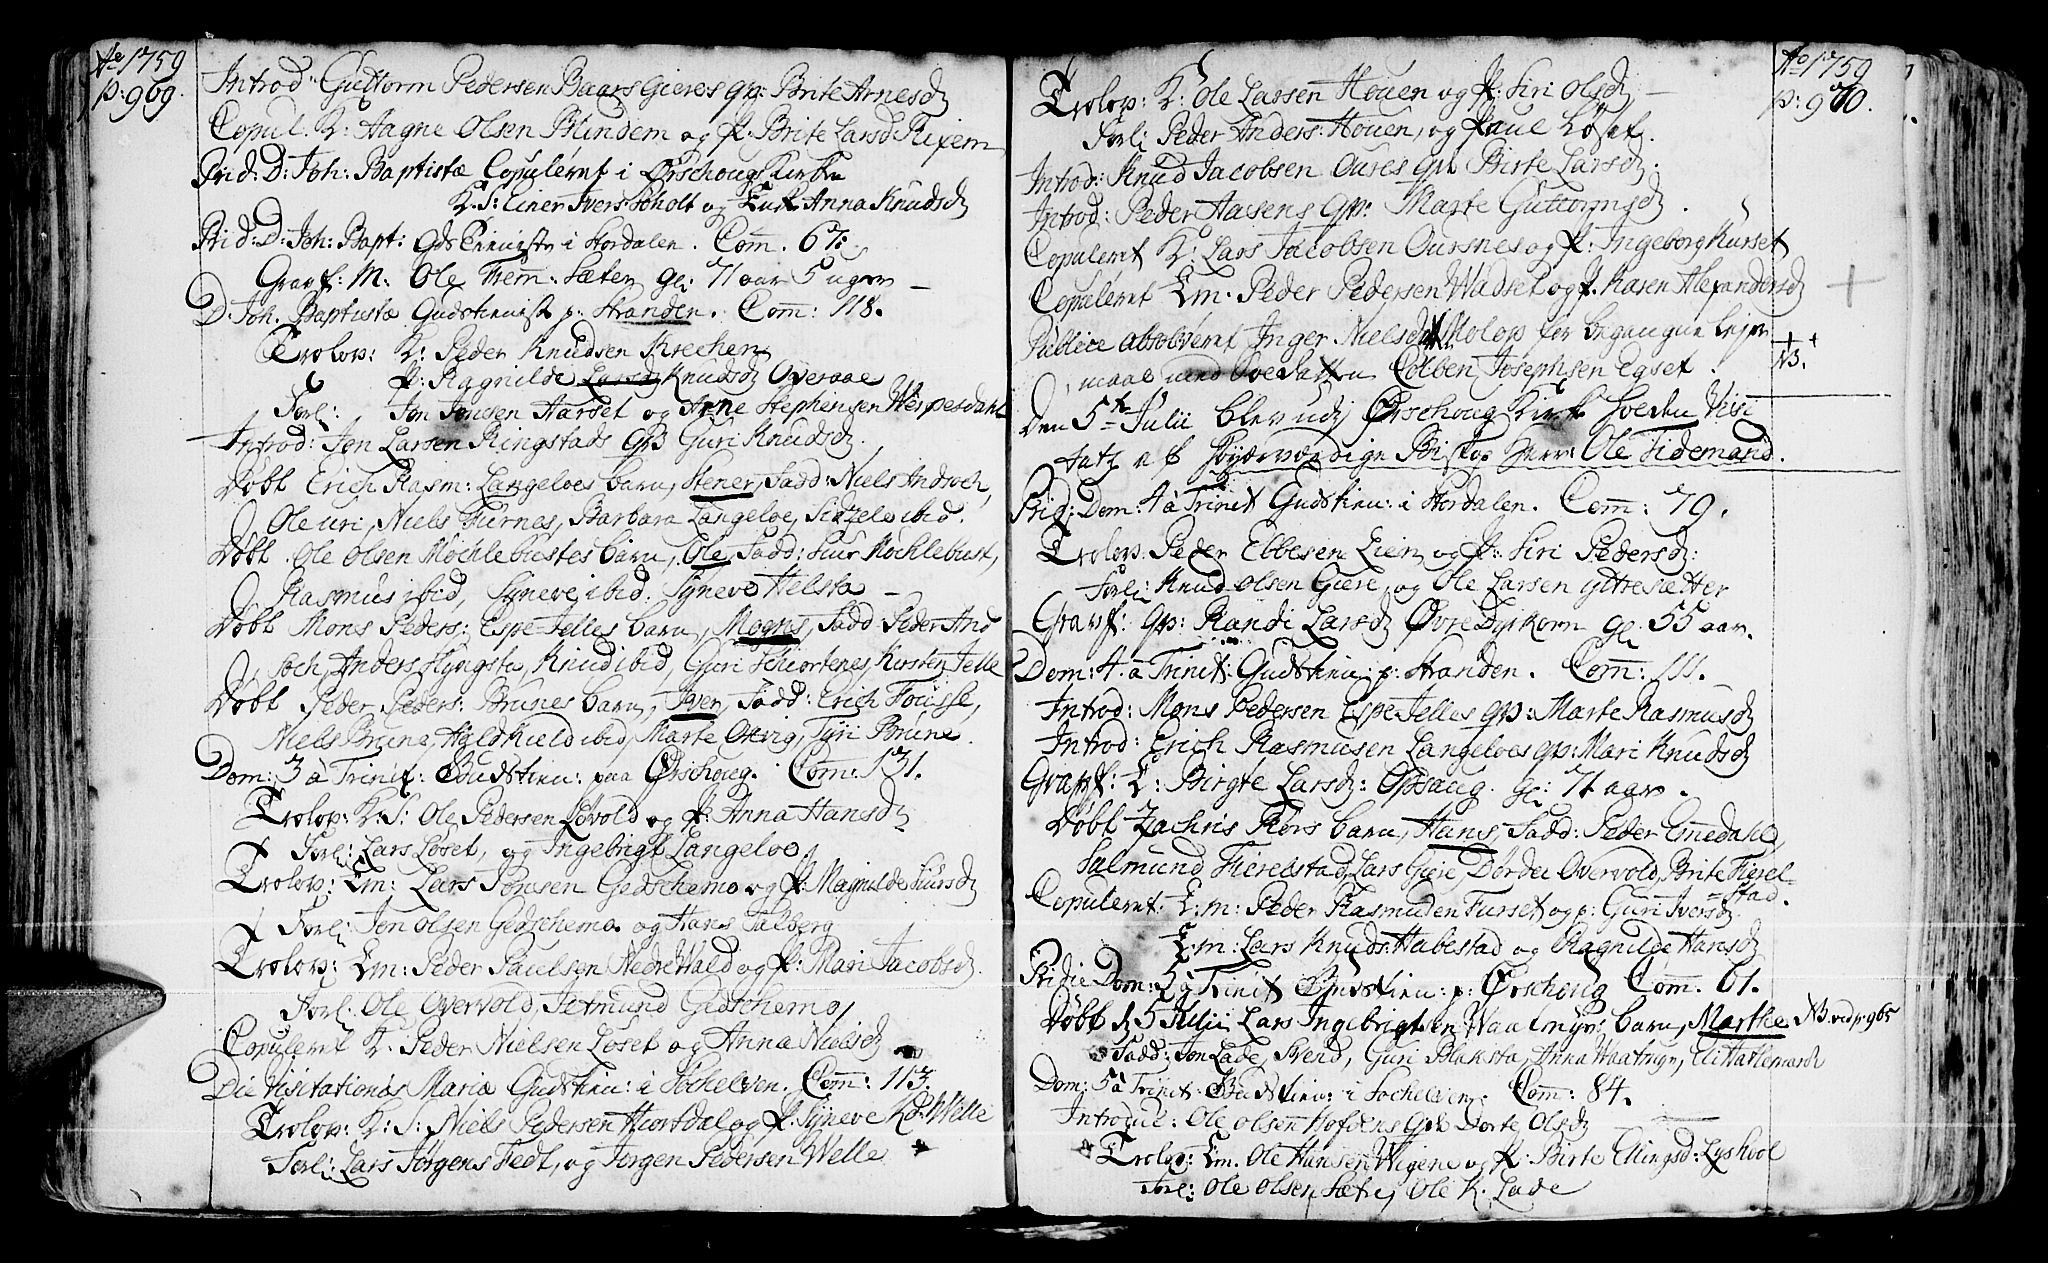 Ao 1759
p: 969.
Introd: Guttorm Pedersen Baars Gieres qv: Brite Arnesd
Copul. K: Aagne Olsen Blindem og p: Brite Larsd Rixem
Prid: D: Joh: Baptistæ Copuleret i Ørschougs Kirke
K. S: Einer Ivers: Scholt og Anna Knudsd
Prid: D: Joh: Bapt: i Stordalen. Com. 67.
Grauf: M: Ole Sæter gl: 71 aar 5 uger
D. Joh. Baptistæ Gudstienist p: Stranden. Com: 118.
Trolov: K: Peder Knudsen Krechen
p: Ragnilde Larsd Knudsd Overaae
Forl: Jon Jonsen Harset og Arne Stephensen
Introd: Jon Larsen Ringstads qv: Guri Knudsd.
Døbt Erich Rasm: Langeloes barn, Stener, Fadd: Niels
Ole uri, Niels Furnes, Barbara Langeloe, Sidzele ibid.
Døbt Ole Olsen Mochlebustes barn, Ole, Fadd: Siur Mochlebust,
Rasmus ibid, Syneve ibid. Syneve Helsta
Døbt Mons Peders: Espe-Jelles barn, Mogns, Fadd: Peder And
Anders Slyngsta, Knud ibid, Guri Kirsten Jelle
Døbt Peder Peders: Brunes barn, Iver, Fadd: Erich
Niels Brune, ibid, Marte Ottvig, Tyri Brune.
Dom: 3 à Trinit: Gudstien: paa Ørschoug. Com: 131.
Trolov: K: S: Ole Pedersen Løvold og p: Anna Hansd
Forl: Lars Løset, og Ingebrigt Langeloe
Trolov: Em: Lars Jonsen Gedschemo og p: Magnilde Siursd
Forl: Jon Olsen Gedschemo og Hans Salberg
Trolov: Em: Peder Paulsen Nedre Wald og p: Mari Jacobsd.
Forl: Ole Overvold, Jetmund Gedschemo,
Copuleret K: Peder Nielsen Løset og Anna Nielsd
Die Visitationis Mariæ Gudstien: i Søchelven. Com: 113.
Trolov: K: S: Niels Pedersen Hiortdal og p: Syneve Welle
Forl: Lars Jørgens Fedt, og Jørgen Pedersen Welle
Ao 1759
p: 970.
Trolov: K: Ole Larsen Houen og p: Siri Olsd
Forl: Peder Anders: Houen, og Paul Løset.
Introd: Knud Jacobsen Oures qv: Birte Larsd.
Introd: Peder Aasens qv: Marte Guttormsd.
Copuleret K: Lars Jacobsen Oursnes og p: Ingeborg Kurset
Copuleret Em: Peder Pedersen Wadset og p: Karen Alexandersd
Publice absolveret Inger Nielsd Molop for begangne leyer
maal med Colben Josephsen Egset.
NB.
Den 5te Julii blev udj Ørschoug Kirke holden Visi
tatz af Høyærværdige Biskop Herr Ole Tidemand.
Prid: Dom: 4 à Trinit Gudstien: i Stordalen. Com: 79.
Trolov: Peder Ebbesen Lien og p: Siri Pedersd:
Forl: Knud Olsen Giere, og Ole Larsen ytresætter
Grauf: qv: Randi Larsd Øvre Dyrkorn gl: 55 aar.
Dom: 4. à Trinit: Gudstien: p: Stranden. Com: 111.
Introd: Mons Pedersen Espe-Jelles qv: Marte Rasmusd
Introd: Erich Rasmusen Langeloes qv: Mari Knudsd
Grauf: E: Birgte Larsd: Opsaug. gl: 71 aar.
Døbt Zachris Kors barn, Hans, Fadd: Peder
Salmund Fierelstad, Lars Giere, Dordei Overvold, Brite Fierel-
stad.
Copuleret: E: m: Peder Rasmusen Furset og p: Guri Iversd.
E: m: Lars Knuds: Habestad og Ragnilde Hansd
Pridie Dom: 5 à Trinit Gudstien: p: Ørschoug Com: 61.
Døbt d 5 Julii Lars Ingebrigtsen Waatmyrs barn, Marthe NB. ved p: 965
Fadd: Jon Lade, Svend, Guri Blaksta, Anna Waatmyr,
Dom: 5 à Trinit: Gudstien: i Søchelven. Com: 84.
Introduc: Ole Olsen Hofdens qv: Dorte Olsd
Trolov: Em. Ole Hansen Wigene og p: Birte Ellingsd: Lyshool
Forl: Ole Olsen Sætre, Ole K: Lade